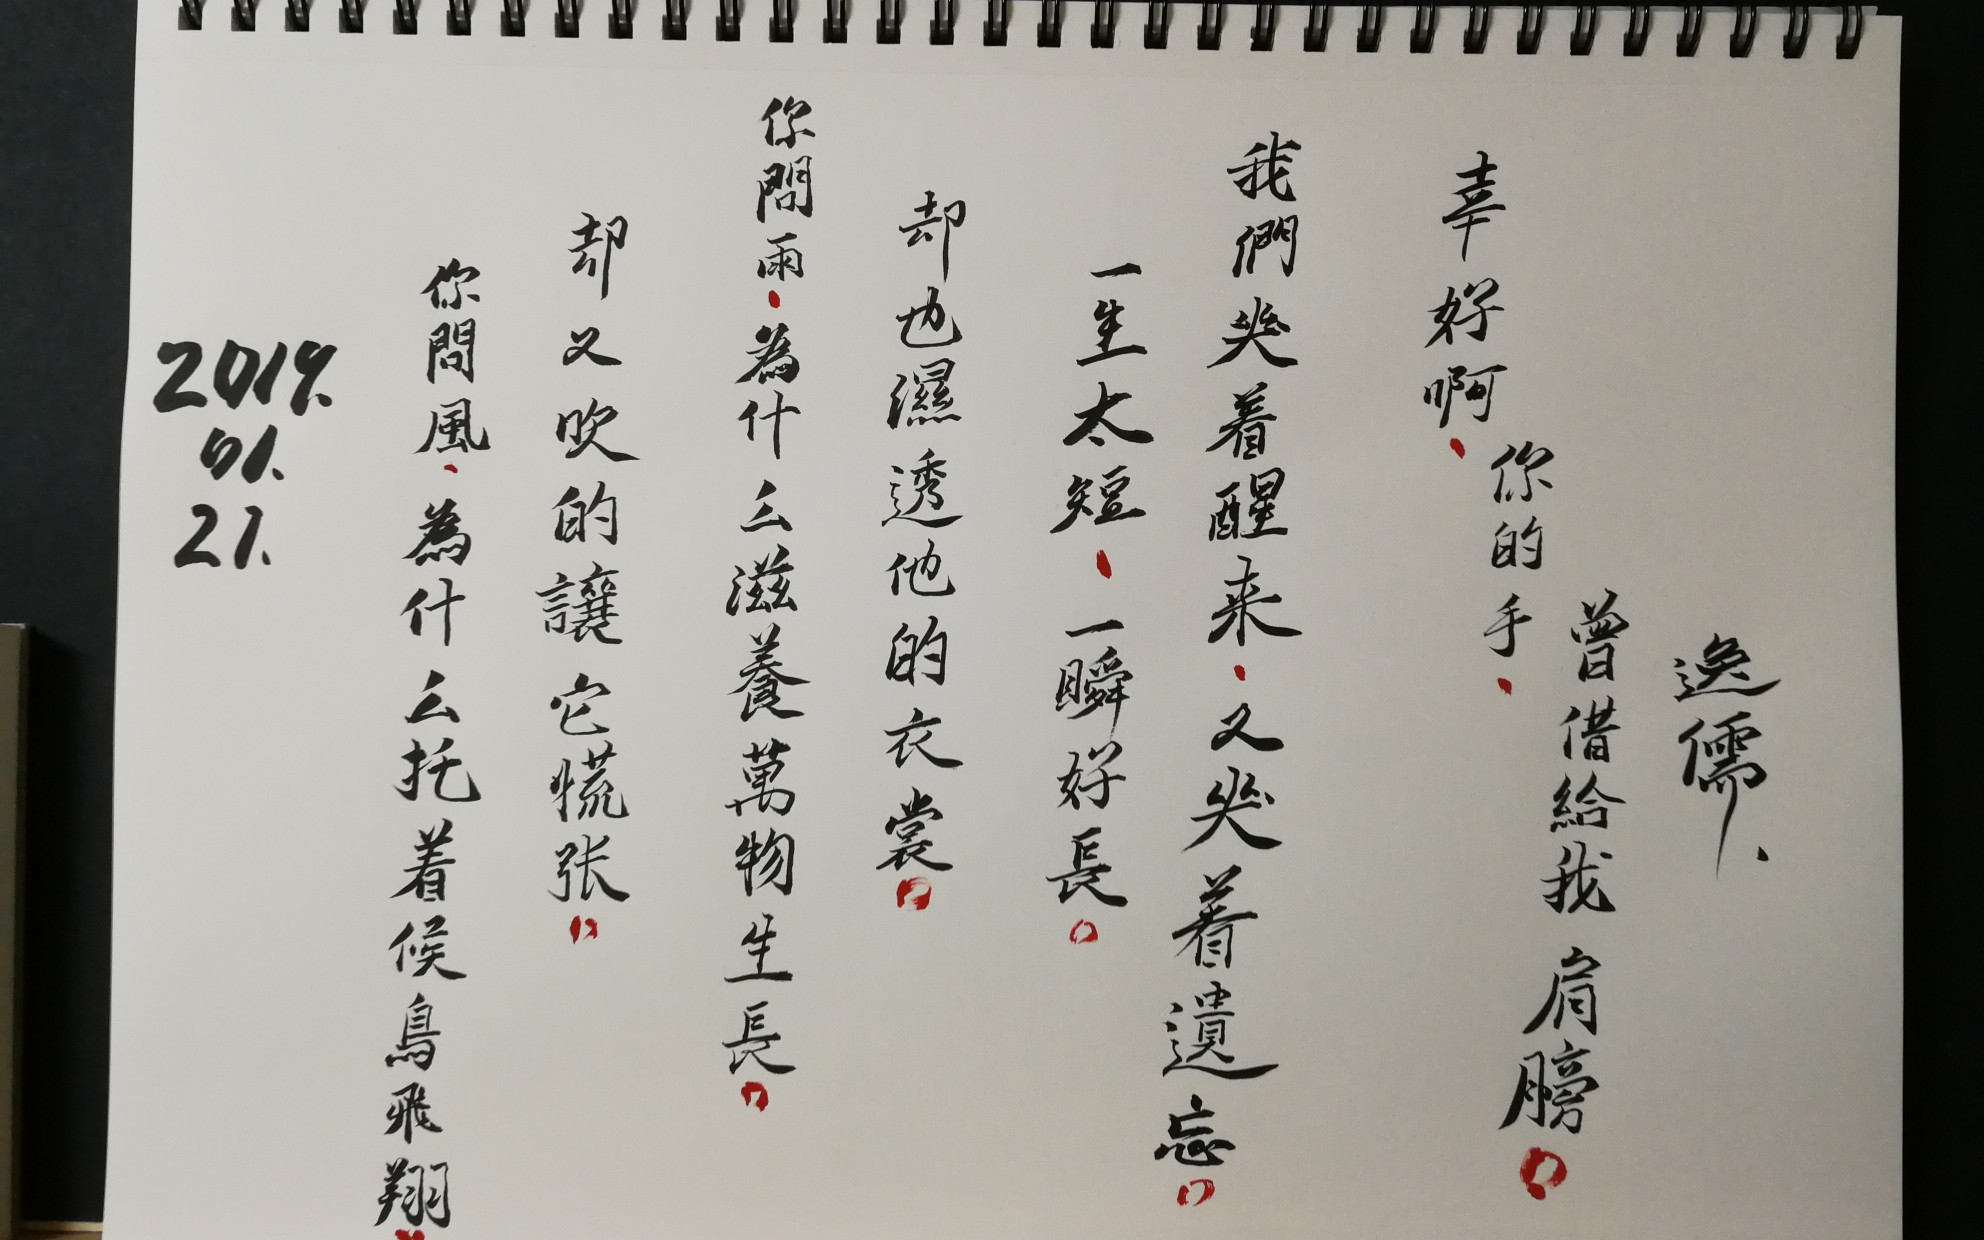 2019.
01.
21.
你問風、為什么托着候鳥飛翔。
却又吹的讓它慌张。
你問雨、為什么滋養萬物生長。
却也濕透他的衣裳。
一生太短、一瞬好長。
我們哭着醒来、又哭着遺忘。
幸好啊、
你的手、
曾借給我肩膀。
逸儒、